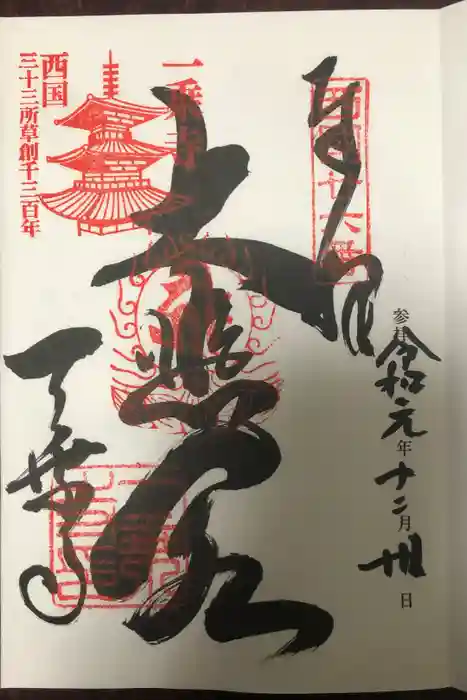 奉拝
西國廿六番
参拝 令和元年十二月卅日
一乗寺
大悲閣
西国
三十三所草創千三百年
一乗寺